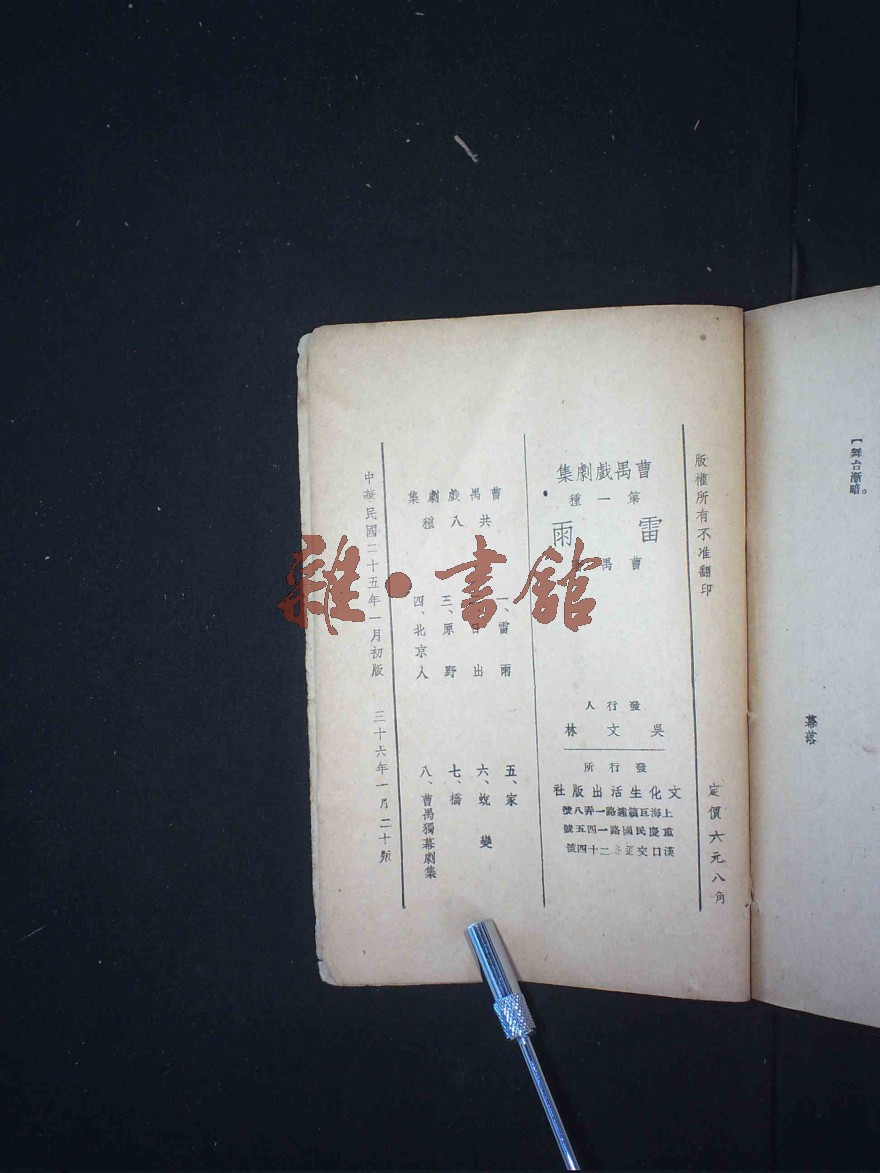 【舞台漸暗。
幕落
版權所有不准翻印
定價六元八角
曹禺戲劇集
第一種
雷雨
曹禺
發行人
吳文林
發行所
文化生活出版社
上海巨籟達路一弄八號
重慶民國路一四五號
漢口交通路二十四號
曹禺戲劇集
共八種
一、雷雨
日出
三、原野
四、北京人
五、家
六、蛻變
七、橋
八、曹禺獨幕劇集
中華民國二十五年一月初版
三十六年一月二十版
雜·書館